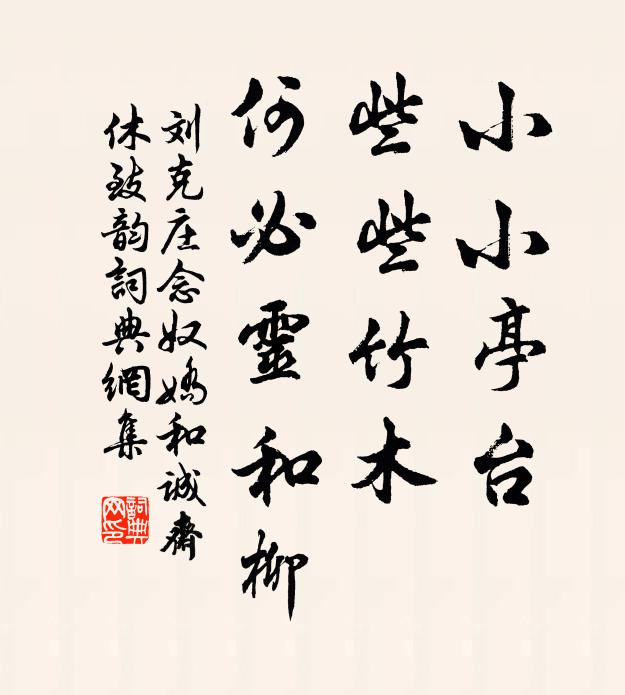 小小亭台
些些竹木
何必靈和柳
刘克庄念奴嬌和诚齋
休致韵詞典網集
詞典
网印